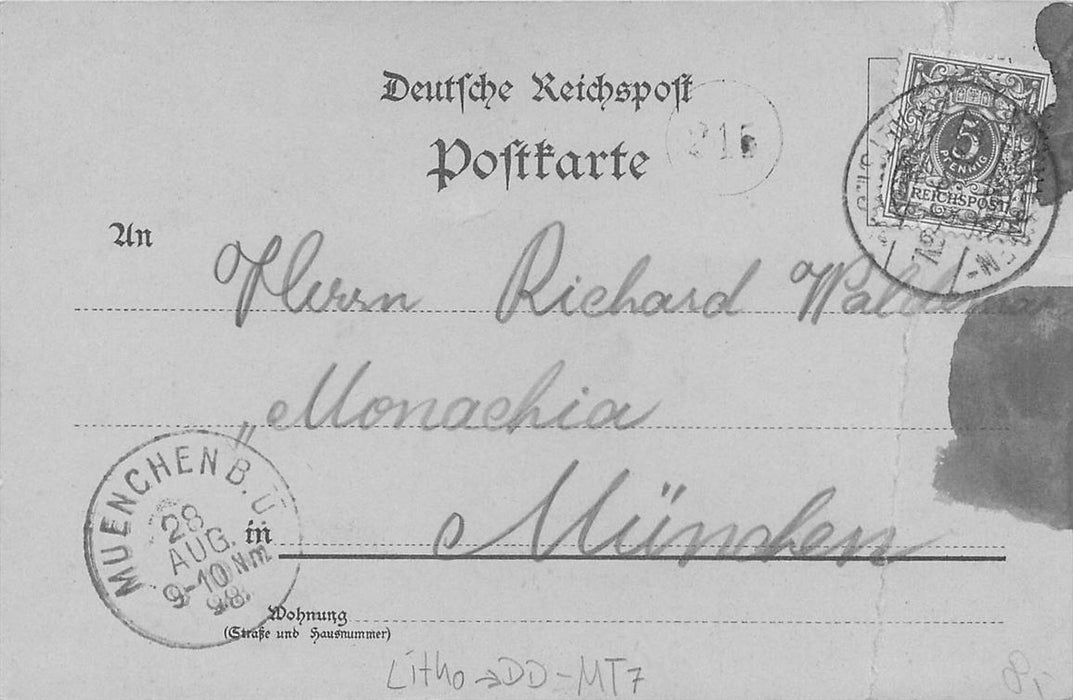 Deutsche Reichspost
Postkarte
215
5
PFENNIG
REICHSPOST
An
Herrn Richard Waldemar
„Monachia
MUENCHEN B. Ü
28
AUG.
9-10 Nm.
98.
in München
Wohnung
(Straße und Hausnummer)
Litho → DD-MT7